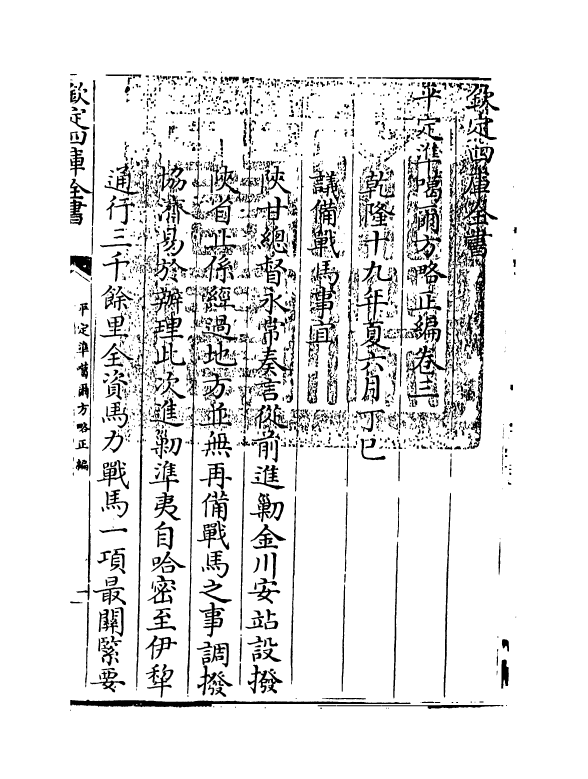 欽定四庫全書
平定準噶爾方略正編卷三
乾隆十九年夏六月丁巳
議備戰馬事宜
陜甘總督永常奏言從前進勦金川安站設撥
陜省止係經過地方並無再備戰馬之事調撥
協濟易於辦理此次進勦準夷自哈密至伊犂
通行三千餘里全資馬力戰馬一項最闗緊要
欽定四庫全書
平定準噶爾方略正編
一